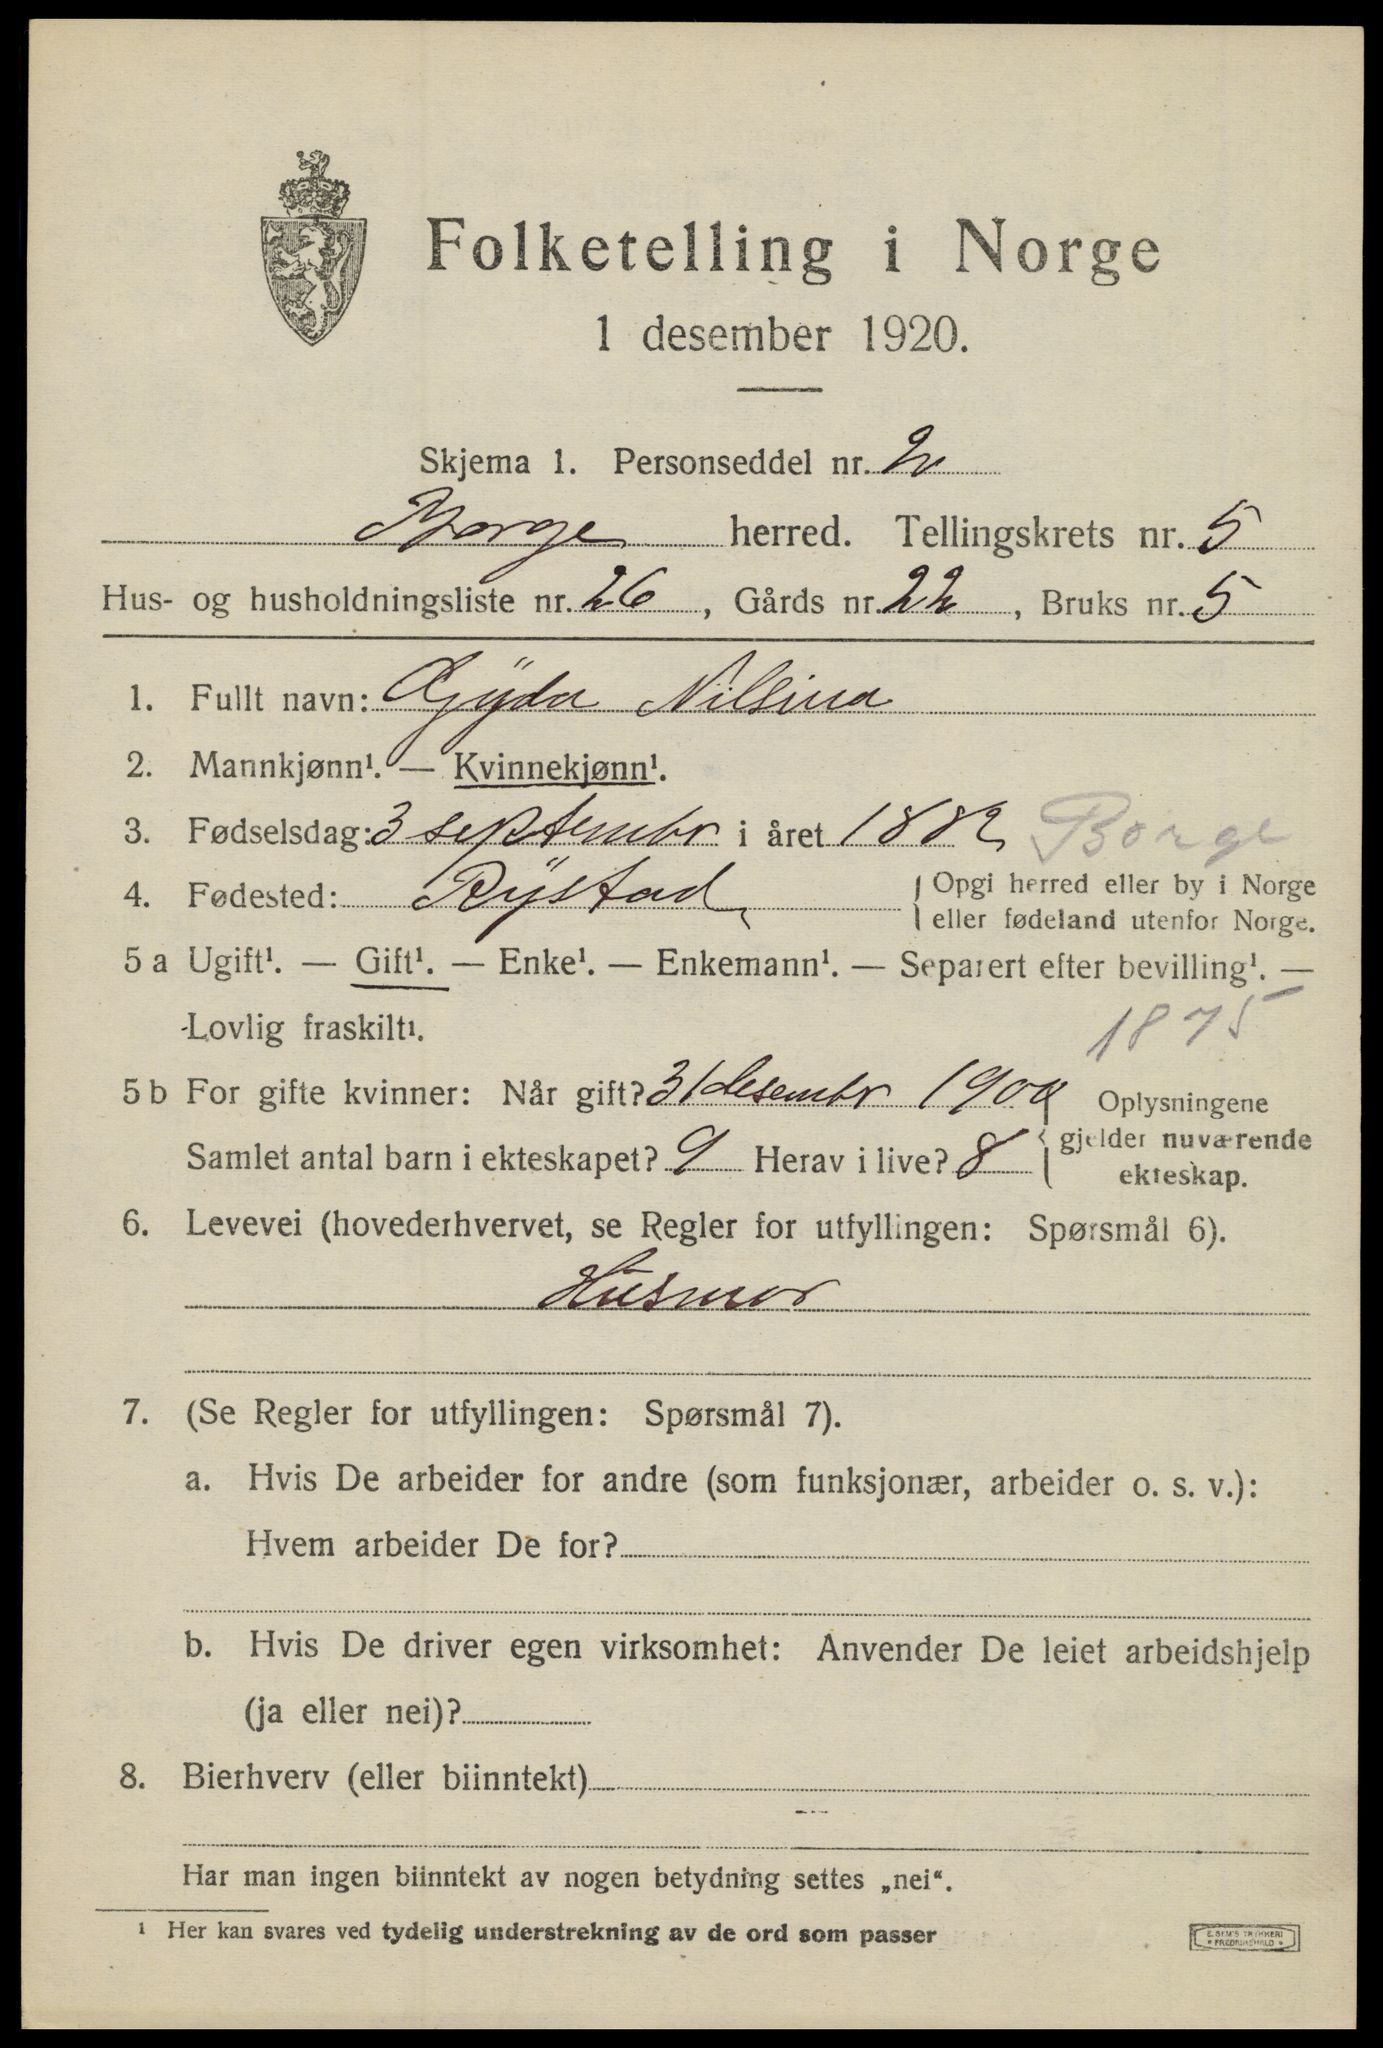 Folketelling i Norge
1 desember 1920.
Skjema 1. Personseddel nr. 2
Borge herred. Tellingskrets nr. 5
Hus- og husholdningsliste nr. 26, Gårds nr. 22, Bruks nr. 5
1. Fullt navn: Gÿda Nilsina
2. Mannkjønn¹. — Kvinnekjønn¹.
3. Fødselsdag: 3 septembr i året 1882 Borge
4. Fødested: Rÿstad {Opgi herred eller by i Norge
eller fødeland utenfor Norge.
5 a Ugift¹. — Gift¹. — Enke¹. — Enkemann¹. — Separert efter bevilling¹. —
Lovlig fraskilt¹.
1875
5 b For gifte kvinner: Når gift? 31 desembr 1900
Samlet antal barn i ekteskapet? 9 Herav i live? 8
Oplysningene
gjelder nuværende
ekteskap.
6. Levevei (hovederhvervet, se Regler for utfyllingen: Spørsmål 6).
Husmor
7. (Se Regler for utfyllingen: Spørsmål 7).
a. Hvis De arbeider for andre (som funksjonær, arbeider o. s. v.):
Hvem arbeider De for?
b. Hvis De driver egen virksomhet: Anvender De leiet arbeidshjelp
(ja eller nei)?
8. Bierhverv (eller biinntekt)
Har man ingen biinntekt av nogen betydning settes „nei“.
¹ Her kan svares ved tydelig understrekning av de ord som passer
E. SEM'S TRYKKERI
FREDRIKSHALD